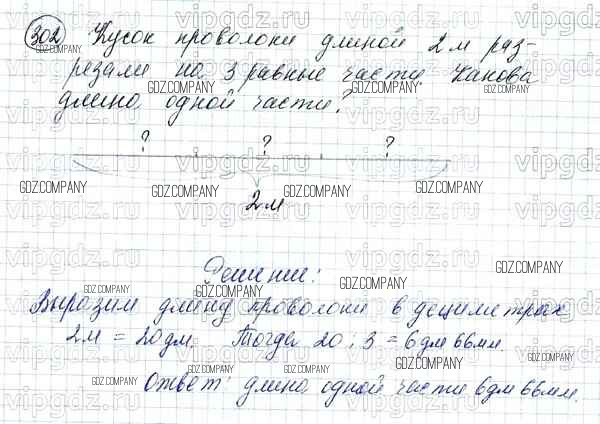 302 Кусок проволоки длиной 2 м раз-
резали на 3 равные части. Какова
длина одной части?
? ? ?
2м
Решение:
Выразим длину проволоки в дециметрах
2м = 20дм. Тогда 20 : 3 = 6дм 66мм.
Ответ: длина одной части 6дм 66мм.